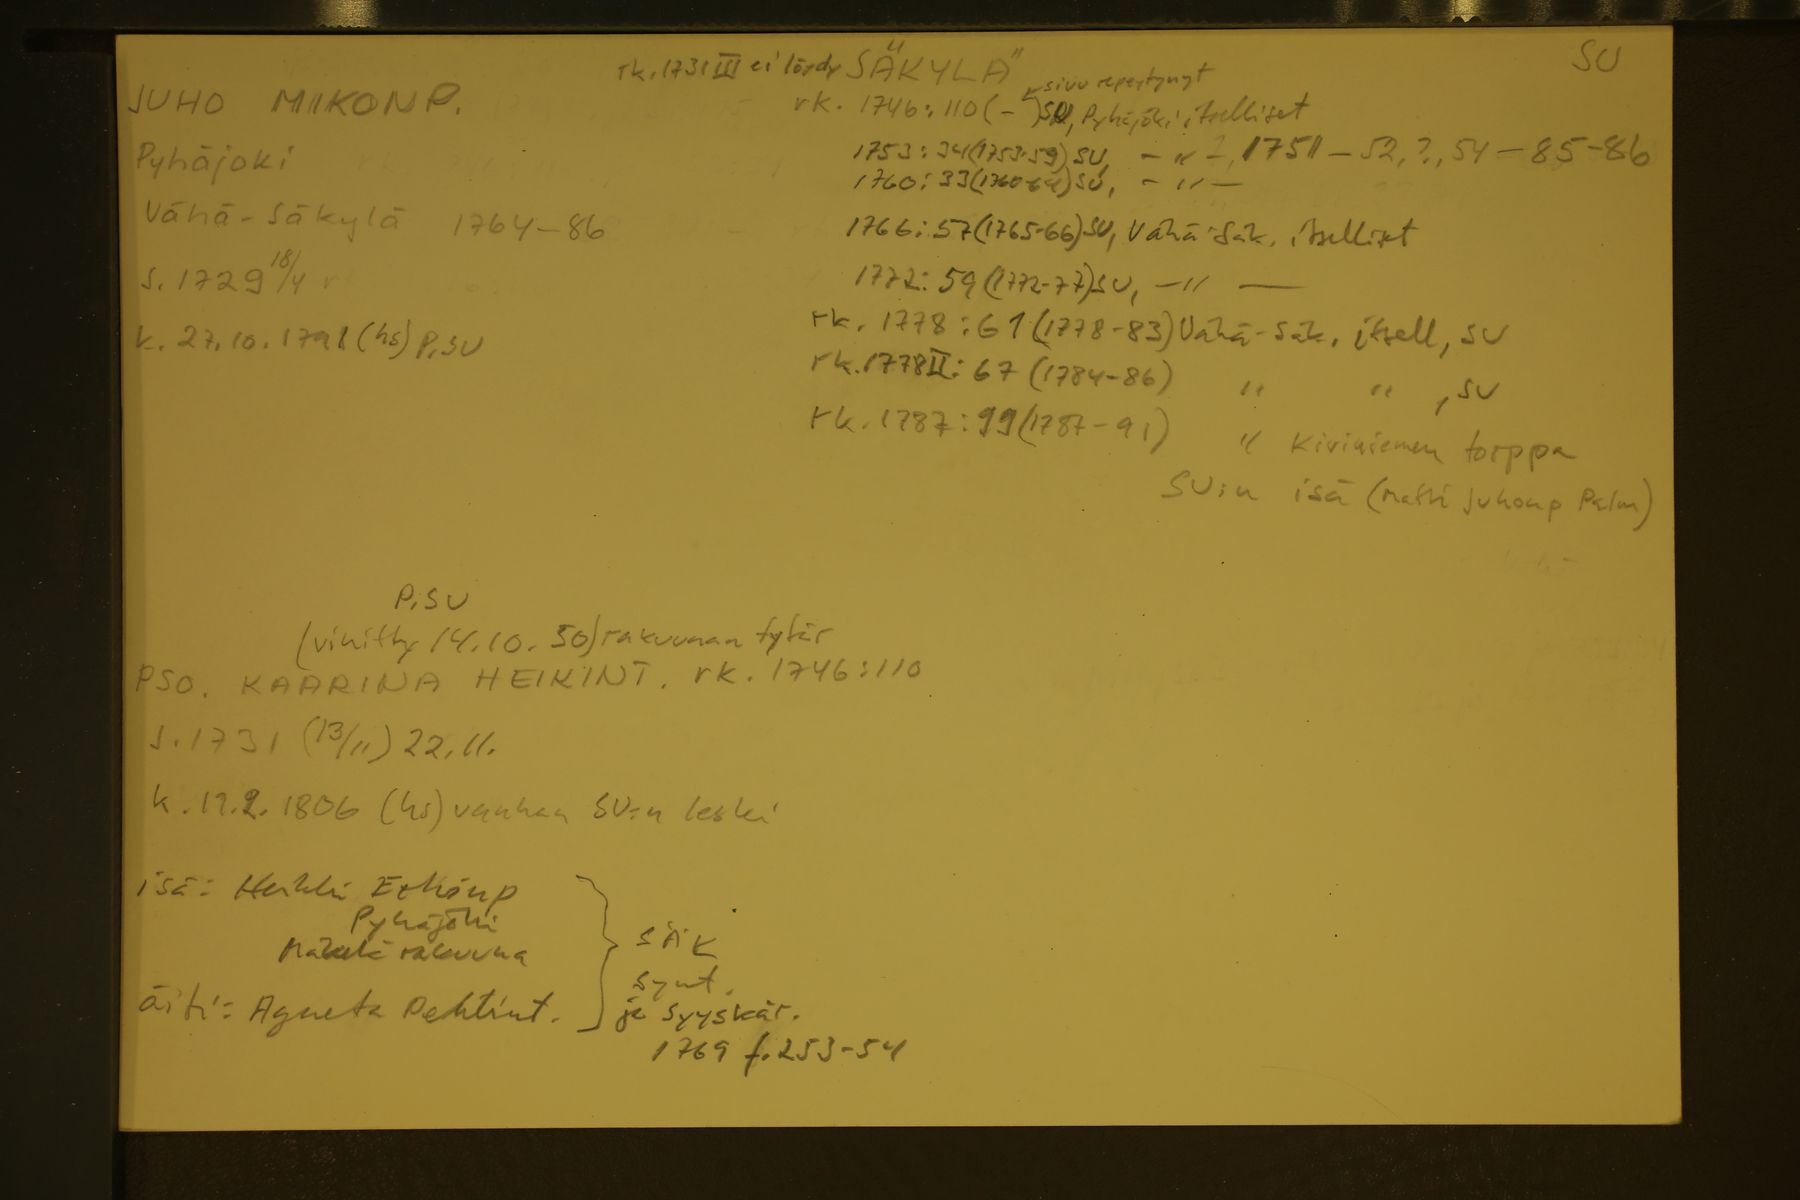 SU
rk. 1731 III ei löydy SÄKYLÄ
JUHO MIIKONP.
sivu repeytynyt
rk. 1746:110 (-) SU, Pyhäjoki, itselliset
Pyhäjoki
1753:34 (1753-59) SU, -"-, 1751-52, ?, 54-85-86
1760:33 (1760-64) SU, -"-
Vähä-Säkylä 1764-86
1766:57 (1765-66) SU, Vähä-Säk. itselliset
s. 1729 18/4
1772:59 (1772-77) SU, -"-
rk. 1778:61 (1778-83) Vähä-Säk. itsell, SU
k. 27.10.1791 (hs) P, SU
rk. 1778 II: 67 (1784-86) " ", SU
rk. 1787:99 (1787-91) " Kiviniemen torppa
SU:n isä (Matti Juhonp Palm)
P, SU
(vihitty 14.10.50) rakuunan tytär
PSO. KAARINA HEIKINT. rk. 1746:110
s. 1731 (13/11) 22.11.
k. 19.2.1806 (hs) vanhan SU:n leski
isä: Heikki Erkinp
Pyhäjoki
Mäkelä rakuuna
SÄK
synt.
äiti: Agneta Pehtint.
ja syyskär.
1769 f. 253-54